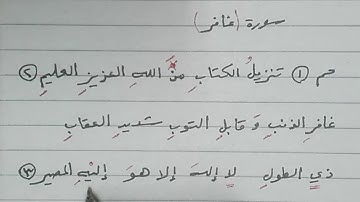 سورة (غافر)
حم ① تنزيلُ الكتابِ منَ اللهِ العزيزِ العليمِ ②
غافرِ الذنبِ وَ قابلِ التوبِ شديدِ العقابِ
ذي الطولِ لا إلهَ إلا هوَ إليْهِ المصير ③